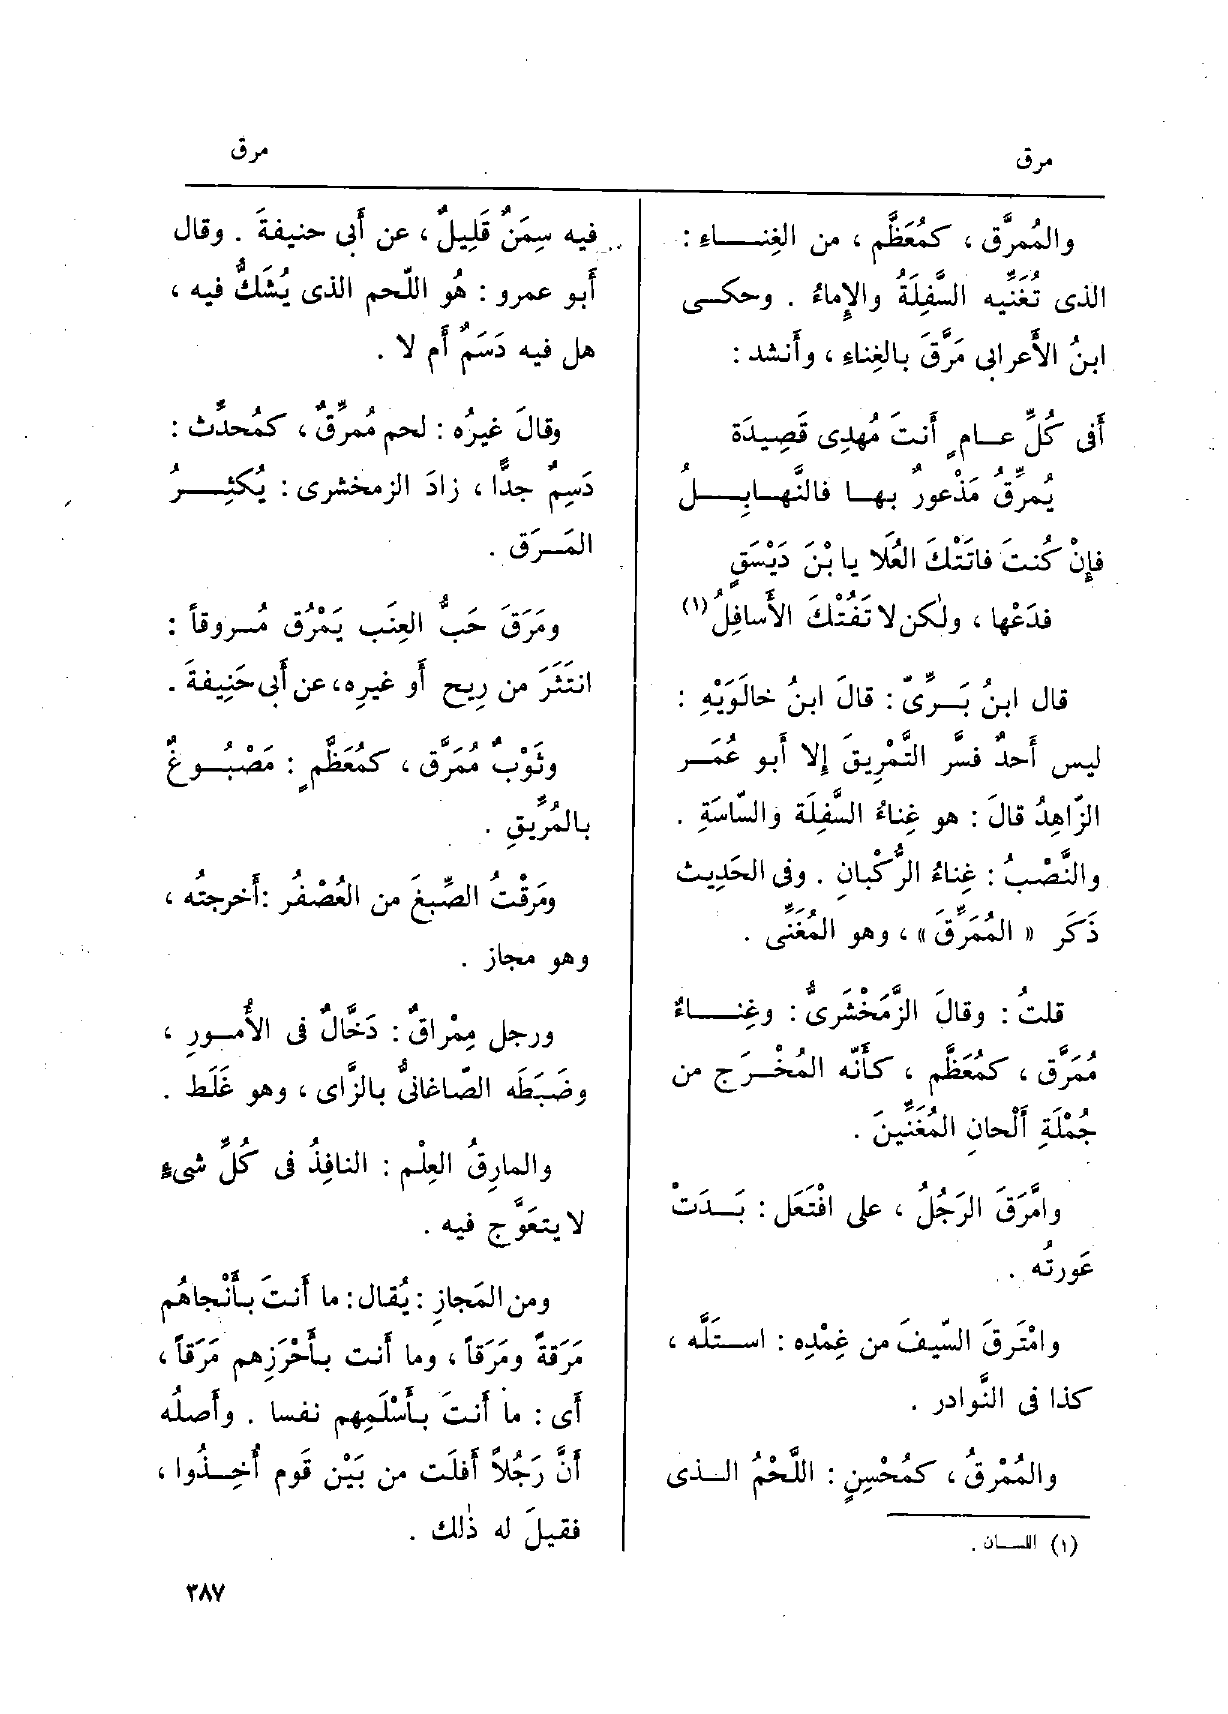 مرق
مرق
والمُمَرَّق ، كمُعَظَّم ، من الغِنــاء :
الذى تُغَنِّيه السَّفِلَةُ والإِماءُ . وحكــى
ابنُ الأَعرابى مَرَّقَ بالغِناء ، وأَنشد :
أَفى كُلِّ عــامٍ أَنتَ مُهدِى قَصِيدَة
يُمرِّقُ مَذْعورٌ بهــا فالنَّهــابِــلُ
فإِنْ كُنتَ فاتَتْكَ العُلَا يا بْنَ دَيْسَقٍ
فدَعْها ، ولٰكن لا تَفُتْكَ الأَسافِلُ (١)
قال ابنُ بَــرِّىّ : قالَ ابنُ خالَوَيْهِ :
ليس أَحدٌ فسَّر التَّمْرِيقَ إِلا أَبو عُمَــر
الزّاهِدُ قالَ : هو غِناءُ السَّفِلَة والسّاسَةِ .
والنَّصْبُ : غِناءُ الرُّكْبانِ . وفى الحَدِيث
ذَكَر « المُمَرِّقَ » ، وهو المُغَنِّى .
قلتُ : وقالَ الزَّمَخْشَرِىُّ : وغِنــاءٌ
مُمَرَّق ، كمُعَظَّم ، كأَنّه المُخْــرَج من
جُمْلَةِ أَلْحانِ المُغَنِّينَ .
وامَّرَقَ الرَجُلُ ، على افْتَعَل : بَــدَتْ
عَورتُه .
وامْتَرقَ السّيفَ من غِمْدِه : استَلَّه ،
كذا فى النَّوادر .
والمُمْرِقُ ، كمُحْسِنٍ : اللَّحْمُ الــذى
(١) اللســان .
فيه سِمَنٌ قَلِيلٌ ، عن أَبى حنيفةَ . وقال
أَبو عمرو : هُو اللّحم الذى يُشَكُّ فيه ،
هل فيه دَسَمٌ أَم لا .
وقالَ غيرُه : لحم مُمرِّقٌ ، كمُحدِّث :
دَسِمٌ جدًّا ، زادَ الزمخشرى : يُكثِــرُ
المَــرَق .
ومَرَقَ حَبُّ العِنَب يَمْرُق مُـروقاً :
انتَثَرَ من رِيح أَو غيرِه، عن أَبى حَنِيفةَ .
وثَوْبٌ مُمَرَّق ، كمُعَظَّمٍ : مَصْبُــوغٌ
بالمُرِّيقِ .
ومَرقْتُ الصِّبغَ من العُصْفُر :أَخرجتُه ،
وهو مجاز .
ورجل مِمْراقٌ : دَخَّالٌ فى الأُمــورِ ،
وضَبَطَه الصّاغانىُّ بالزَّاى ، وهو غَلَط .
والمارِقُ العِلْم : النافِذُ فى كُلِّ شىءٍ
لا يتعَوَّج فيه .
ومن المَجازِ : يُقال : ما أَنتَ بأَنْجاهُم
مَرَقةً ومَرَقاً ، وما أَنت بأَحْرَزِهم مَرَقاً ،
أَى : ما أَنتَ بأَسْلَمِهم نفسا . وأَصلُه
أَنَّ رَجُلاً أَفلَت من بَيْن قَوم أُخِــذُوا ،
فقيلَ له ذٰلك .
٣٨٧